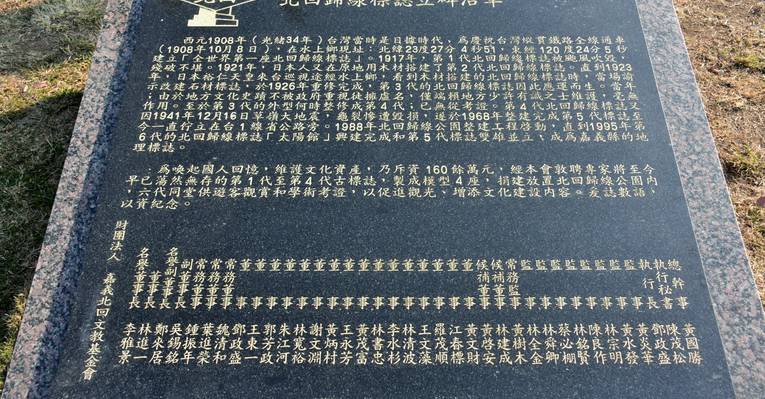 北回歸線標誌立碑沿革
西元1908年(光緒34年)台灣當時是日據時代，為慶祝台灣縱貫鐵路全線通車
(1908年10月8日)，在水上鄉現址：北緯23度27分4秒51，東經120度24分5秒
建立「全世界第一座北回歸線標誌」。1917年，第1代北回歸線標誌被颱風吹毀，
殘破不堪。1921年，日本人又在原地用木材搭建了第2代北回歸線標誌。直到1923
年，日本裕仁天皇來台巡視途經水上鄉，看到木材搭建的北回歸線標誌時，當場諭
示改建石材標誌，於1926年重修完成，第3代的北回歸線標誌因此應運而生。當年
由於地方文化史蹟不被政府重視徒據虛名，僅端賴地方少許有識之士維護，毫無
作用。至於第3代的外型何時整修成第4代；已無從考證。第4代北回歸線標誌又
因1941年12月16日草嶺大地震，龜裂慘遭毀損，遂於1968年整建完成第5代標誌至
今一直行立在台1線省公路旁。1988年北回歸線公園整建工程啓動，直到1995年第
6代的北回歸線標誌「太陽館」興建完成和第5代標誌雙雄並立，成為嘉義縣的地
理標誌。
為喚起國人回憶，維護文化資產，乃斥資160餘萬元，經本會敦聘專家將至今
早已蕩然無存的第1代至第4代古標誌，製成模型4座，捐建放置北回歸線公園內
，六代同堂供遊客觀賞和學術考證，以促進觀光、增添文化建設內容。爰誌數語，
以資紀念。
財團法人 嘉義北回文教基金會
名譽董事長 李雅景
董事長 林進一
名譽副董事長 鄭來居
副董事長 吳錫銘
常務董事 鍾振年
常務董事 葉進榮
常務董事 魏清和
董事 鄧政盛
董事 王東一
董事 郭芳政
董事 朱江河
董事 林寬裕
董事 謝文淵
董事 黃炳村
董事 王永芳
董事 黃茂富
董事 林書忠
董事 李水杉
董事 林清波
董事 王文藻
董事 羅茂順
董事 江春標
候補董事 黃文財
候補董事 黃啓安
常務監事 林建成
監事 黃樹木
監事 林全金
監事 林舜卿
監事 蔡必棚
監事 林銘賢
監事 陳良作
監事 林宗明
監事 黃水發
執行長 黃炎華
執行秘書 鄧政盛
總幹事 陳茂松
黃國勝